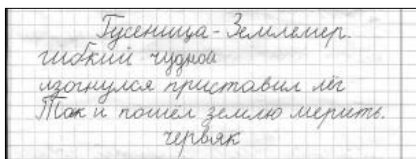 Гусеница - Землемер.
гибкий чудной
изогнулся приставил лёг
Так и пошел землю мерить.
червяк